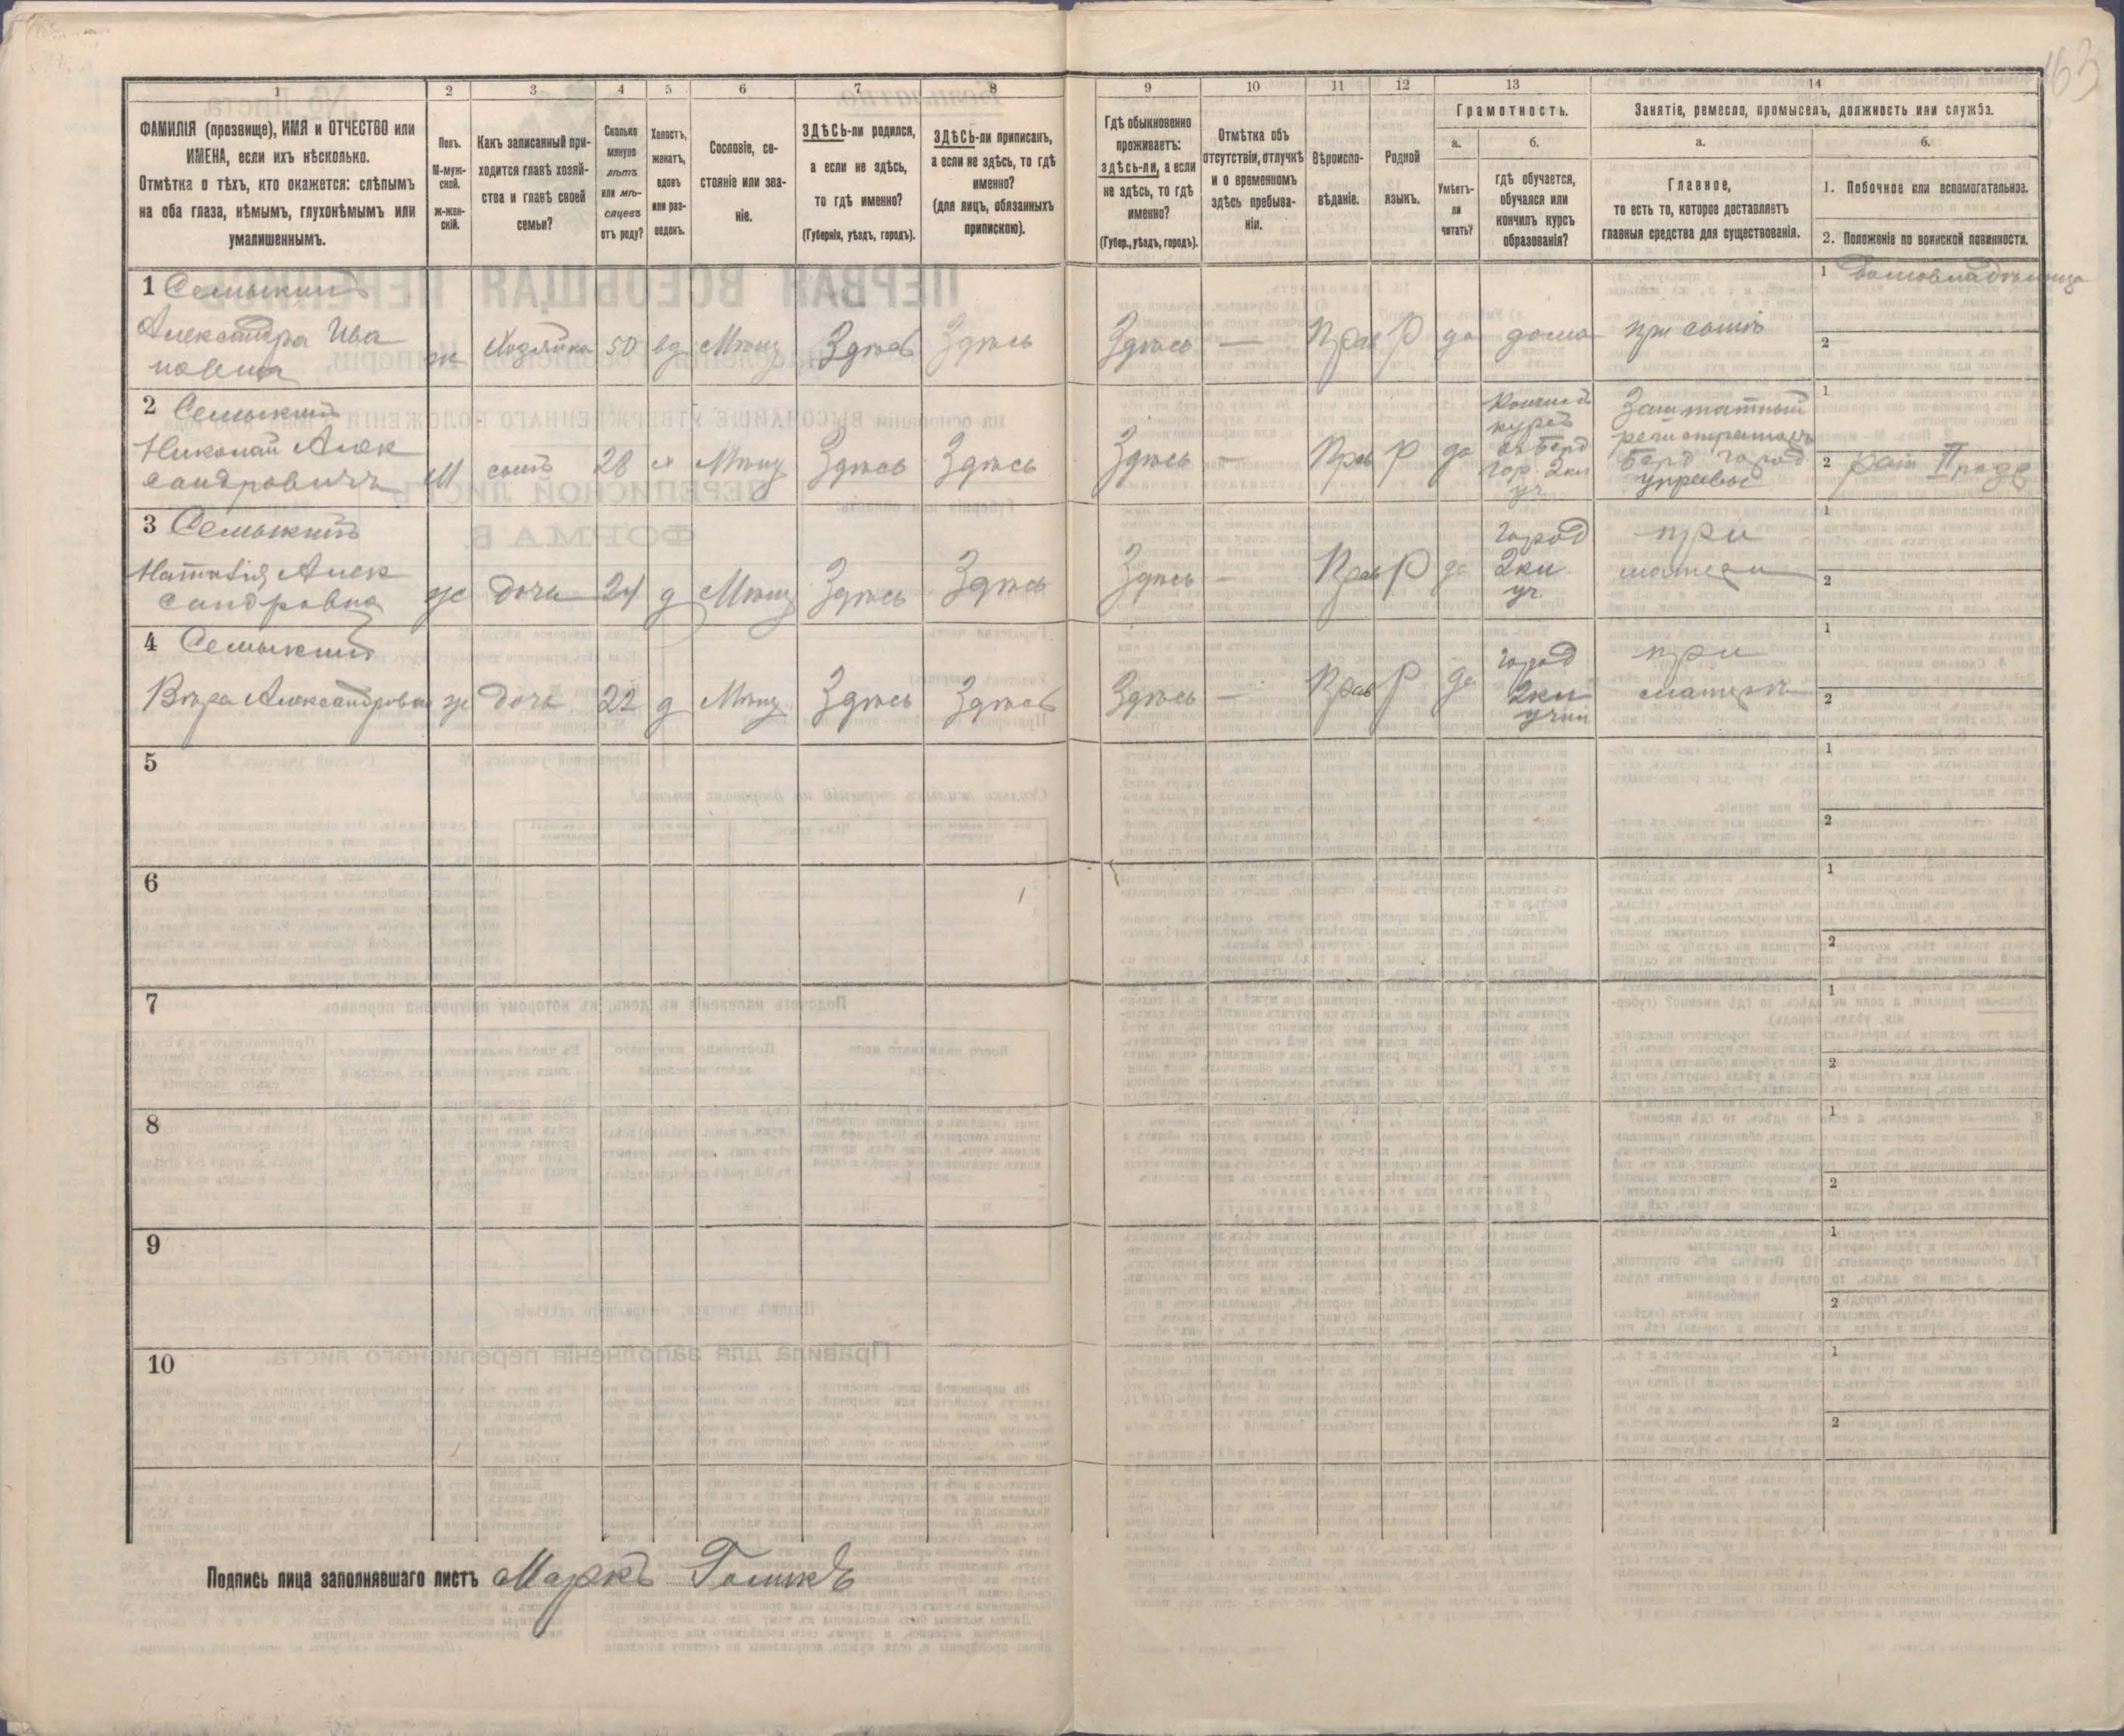 163
1
2
3
4
5
6
7
8
9
10
11
12
13
14
ФАМИЛІЯ (прозвище), ИМЯ и ОТЧЕСТВО или
ИМЕНА, если ихъ нѣсколько.
Отмѣтка о тѣхъ, кто окажется: слѣпымъ
на оба глаза, нѣмымъ, глухонѣмымъ или
умалишеннымъ.
Полъ.
М-муж-
ской.
ж-жен-
скій.
Какъ записанный при-
ходится главѣ хозяй-
ства и главѣ своей
семьи?
Сколько
минуло
лѣтъ
или мѣ-
сяцевъ
отъ роду?
Холостъ,
женатъ,
вдовъ
или раз-
веденъ.
Сословіе, со-
стояніе или зва-
ніе.
ЗДѢСЬ-ли родился,
а если не здѣсь,
то гдѣ именно?
(Губернія, уѣздъ, городъ).
ЗДѢСЬ-ли приписанъ,
а если не здѣсь, то гдѣ
именно?
(для лицъ, обязанныхъ
припискою).
Гдѣ обыкновенно
проживаетъ:
здѣсь-ли, а если
не здѣсь, то гдѣ
именно?
(Губер., уѣздъ, городъ).
Отмѣтка объ
отсутствіи, отлучкѣ
и о временномъ
здѣсь пребыва-
ніи.
Вѣроиспо-
вѣданіе.
Родной
языкъ.
Грамотность.
а.
Умѣетъ-
ли
читать?
б.
гдѣ обучается,
обучался или
кончилъ курсъ
образованія?
Занятіе, ремесло, промыселъ, должность или служба.
а.
Главное,
то есть то, которое доставляетъ
главныя средства для существованія.
б.
1. Побочное или вспомогательное.
2. Положеніе по воинской повинности.
1 Семыкинъ
Александра Ива
новна
ж Хозяйка 50 вд Мѣщ Здѣсь Здѣсь Здѣсь — Прав Р да дома при сынѣ
1 домовладѣлица
2
2 Семыкинъ
Николай Алек
сандровичъ
М сынъ 28 х Мѣщ Здѣсь Здѣсь Здѣсь — Прав Р да
Кончилъ
курсъ
въ Берд
гор. 2кл
уч.
Заштатный
регистраторъ
Берд город
управы
1
2
3 Семыкинъ
Наталія Алек
сандровна
ж дочь 24 д Мѣщ Здѣсь Здѣсь Здѣсь — Прав Р да
город
2кл
уч.
при
матери
1
2
4 Семыкинъ
Вѣра Александровна ж дочь 22 д Мѣщ. Здѣсь Здѣсь Здѣсь — Прав Р да
город
2кл
учил
при
матери
1
2
5
1
2
6
1
2
7
1
2
8
1
2
9
1
2
10
1
2
Подпись лица заполнявшаго листъ Маркъ